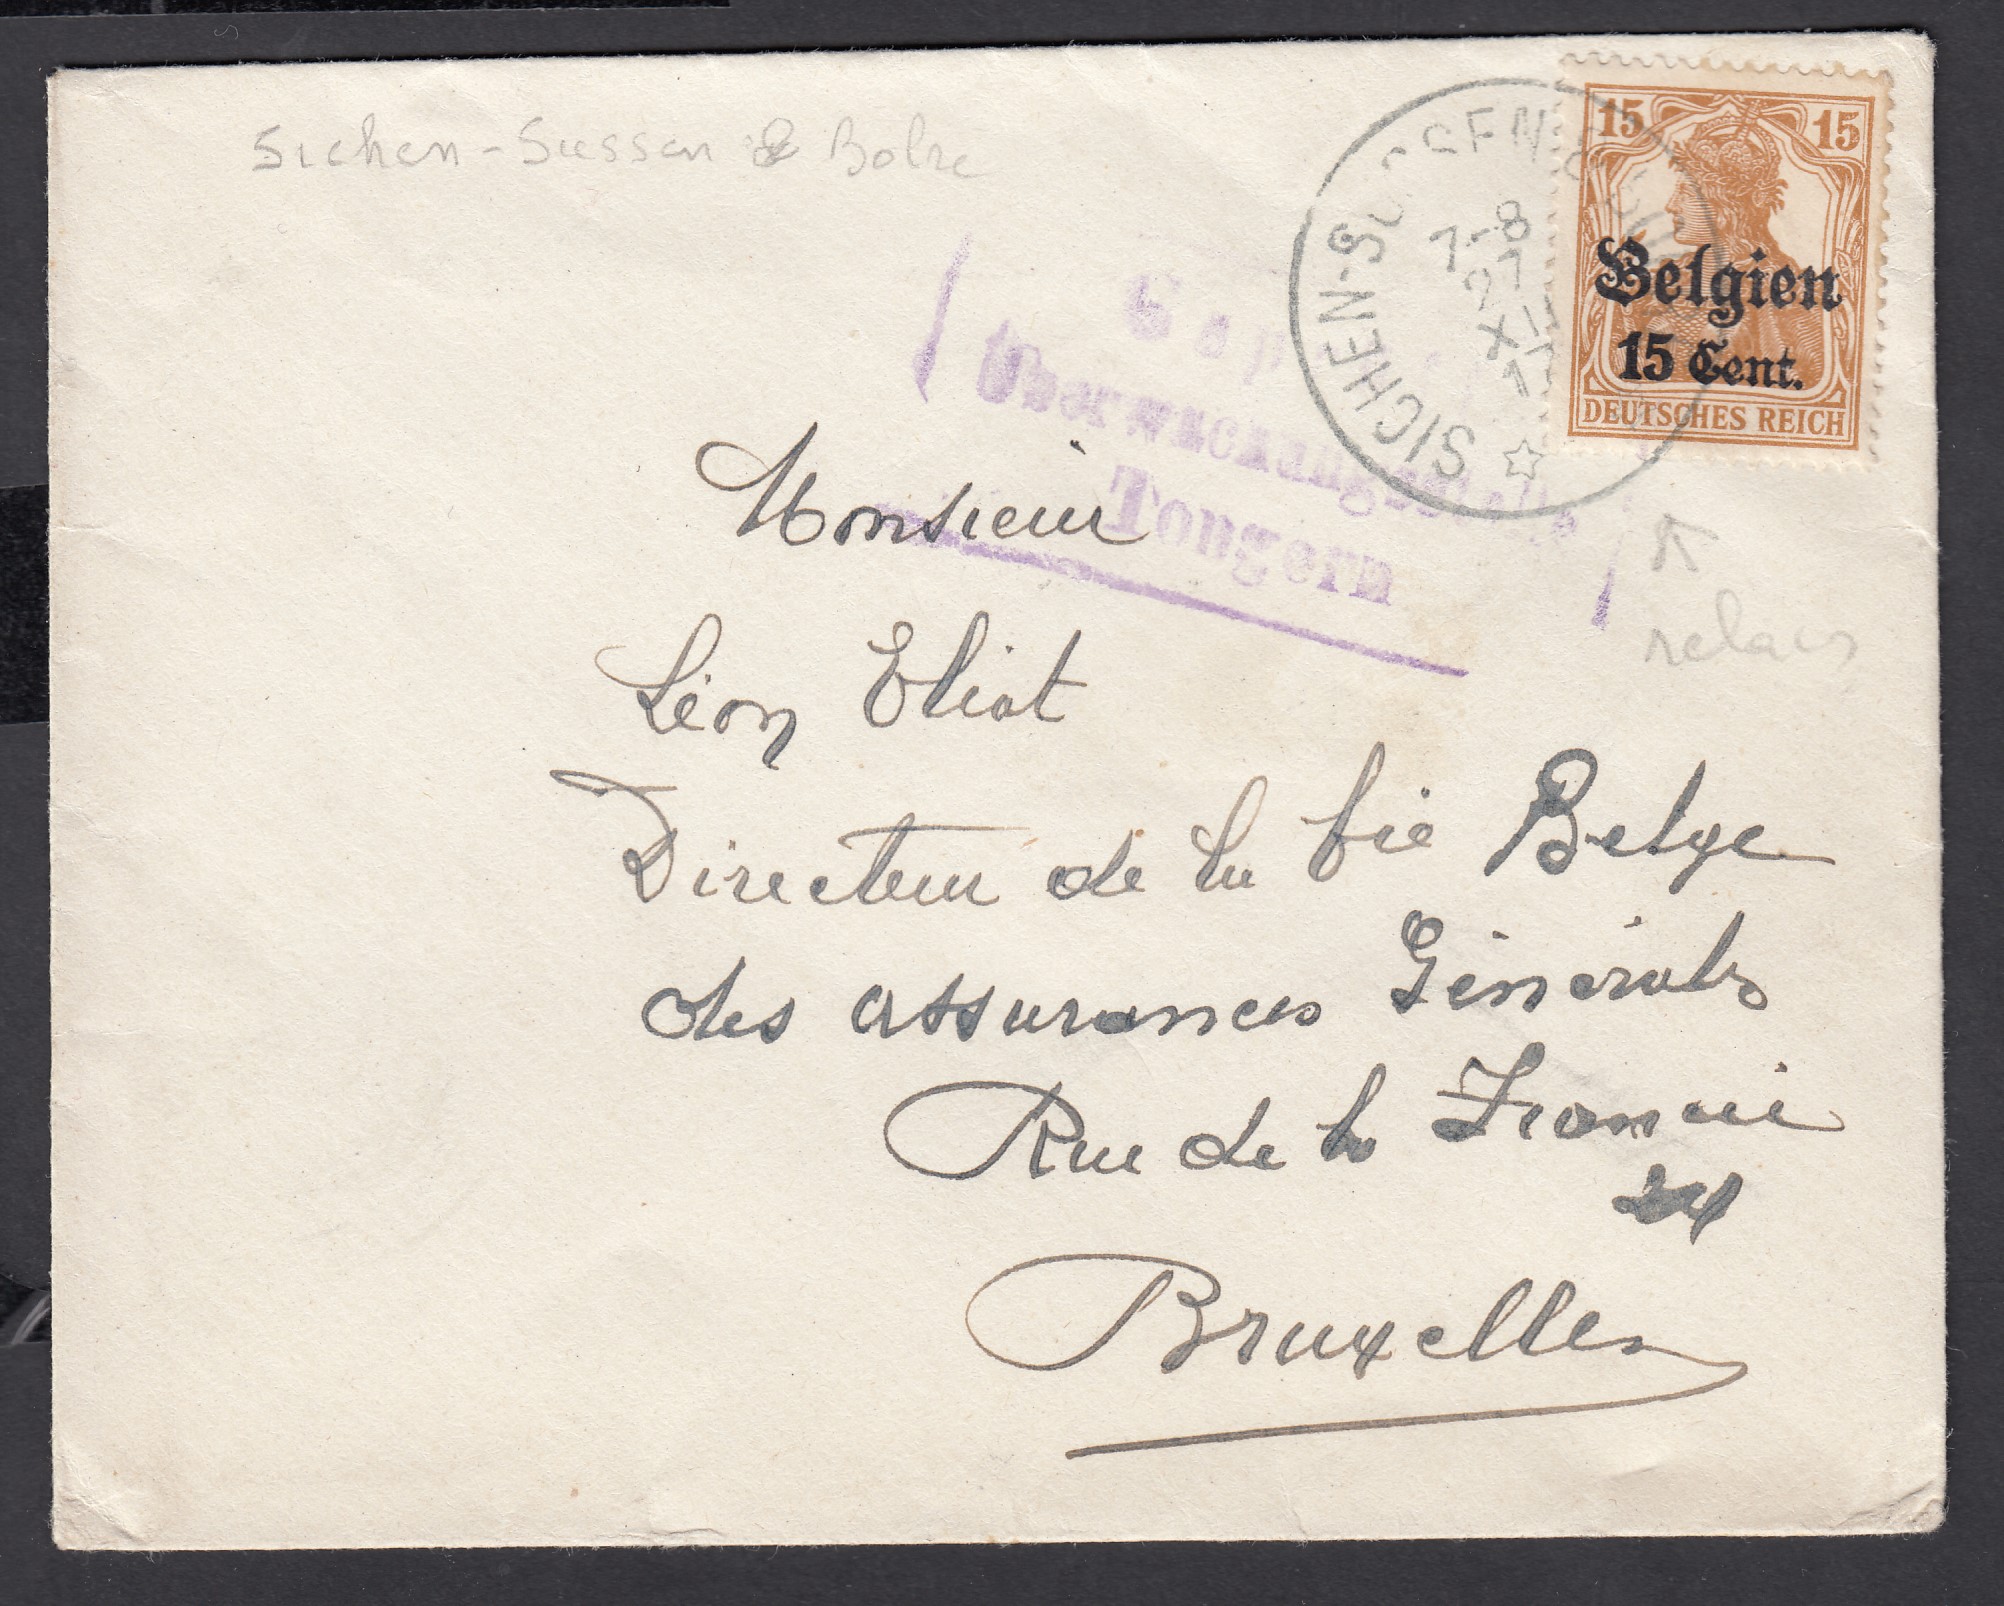 Sichen-Sussen & Bolre
SICHEN-SUSSEN
7-8
27
XI
17
15 15
Belgien
15 Cent.
DEUTSCHES REICH
Überwachungsstelle
Tongern
relais
Monsieur
Léon Eliat
Directeur de la Cie Belge
des assurances Générales
Rue de la Francie
24
Bruxelles